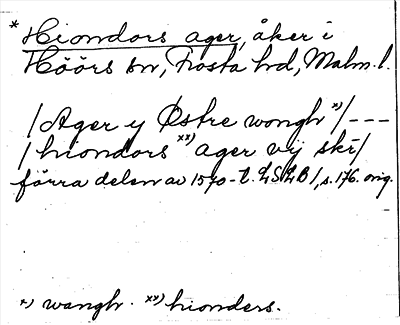 * Hiondors ager, åker i
Höörs sn, Frosta hd, Malm. l.
/ Ager y Østre wongh x) / ---
/ hiondors xx) ager vij skr /
förra delen av 1570-t. LSLB 1, s. 176. orig.
x) wangh. xx) hionders.